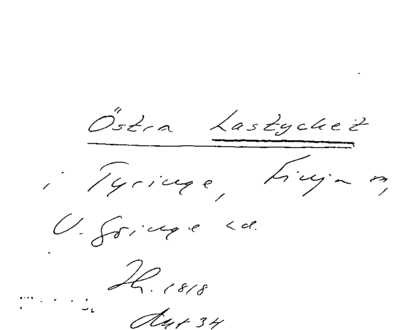 Östra Lastycket
i Tyringe, Finja sn,
V. Göinge hd.
Jh. 1818
Akt 34